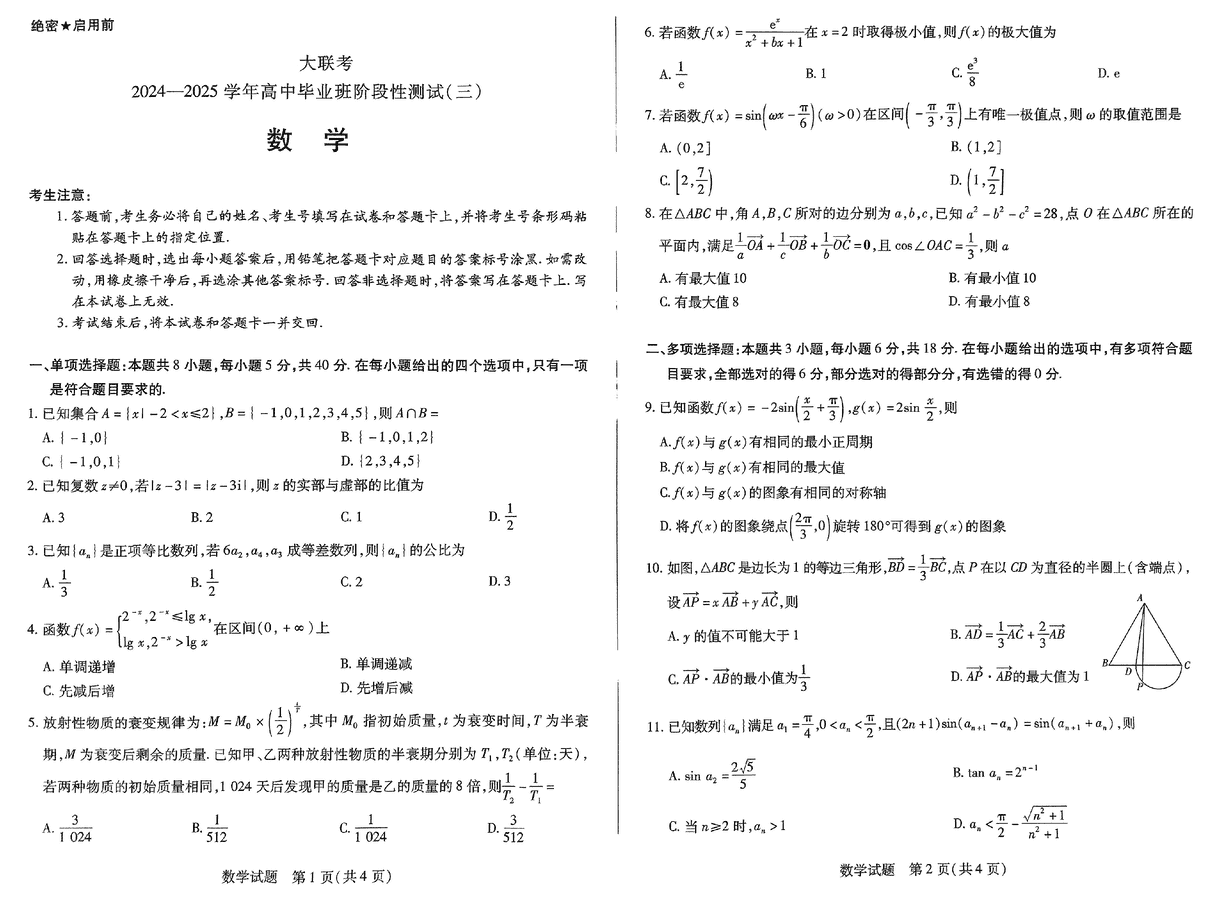 绝密★启用前
大联考
2024—2025 学年高中毕业班阶段性测试(三)
数 学
考生注意:
1. 答题前,考生务必将自己的姓名、考生号填写在试卷和答题卡上,并将考生号条形码粘
贴在答题卡上的指定位置.
2. 回答选择题时,选出每小题答案后,用铅笔把答题卡对应题目的答案标号涂黑. 如需改
动,用橡皮擦干净后,再选涂其他答案标号. 回答非选择题时,将答案写在答题卡上. 写
在本试卷上无效.
3. 考试结束后,将本试卷和答题卡一并交回.
一、单项选择题:本题共 8 小题,每小题 5 分,共 40 分. 在每小题给出的四个选项中,只有一项
是符合题目要求的.
1. 已知集合 A = {x| -2 < x ≤ 2}, B = { -1,0,1,2,3,4,5}, 则 A∩B =
A. { -1,0} B. { -1,0,1,2}
C. { -1,0,1} D. {2,3,4,5}
2. 已知复数 z≠0,若|z - 3| = |z - 3i|,则 z 的实部与虚部的比值为
A. 3 B. 2 C. 1 D. 1/2
3. 已知{aₙ}是正项等比数列,若 6a₂,a₄,a₃ 成等差数列,则{aₙ}的公比为
A. 1/3 B. 1/2 C. 2 D. 3
4. 函数 f(x) = {2^(-x), 2^(-x) ≤ lg x, lg x, 2^(-x) > lg x 在区间(0, +∞)上
A. 单调递增 B. 单调递减
C. 先减后增 D. 先增后减
5. 放射性物质的衰变规律为:M = M₀ × (1/2)^(t/T),其中 M₀ 指初始质量,t 为衰变时间,T 为半衰
期,M 为衰变后剩余的质量. 已知甲、乙两种放射性物质的半衰期分别为 T₁,T₂(单位:天),
若两种物质的初始质量相同,1 024 天后发现甲的质量是乙的质量的 8 倍,则 1/T₂ - 1/T₁ =
A. 3/1 024 B. 1/512 C. 1/1 024 D. 3/512
数学试题 第 1 页(共 4 页)
6. 若函数 f(x) = eˣ/(x² + bx + 1) 在 x = 2 时取得极小值,则 f(x) 的极大值为
A. 1/e B. 1 C. e³/8 D. e
7. 若函数 f(x) = sin(ωx - π/6)(ω > 0)在区间( -π/3, π/3)上有唯一极值点,则 ω 的取值范围是
A. (0,2] B. (1,2]
C. [2, 7/2) D. (1, 7/2]
8. 在△ABC 中,角 A,B,C 所对的边分别为 a,b,c,已知 a² - b² - c² = 28,点 O 在△ABC 所在的
平面内,满足 1/a OA→ + 1/c OB→ + 1/b OC→ = 0,且 cos∠OAC = 1/3,则 a
A. 有最大值 10 B. 有最小值 10
C. 有最大值 8 D. 有最小值 8
二、多项选择题:本题共 3 小题,每小题 6 分,共 18 分. 在每小题给出的选项中,有多项符合题
目要求,全部选对的得 6 分,部分选对的得部分分,有选错的得 0 分.
9. 已知函数 f(x) = -2sin(x/2 + π/3), g(x) = 2sin x/2,则
A. f(x) 与 g(x) 有相同的最小正周期
B. f(x) 与 g(x) 有相同的最大值
C. f(x) 与 g(x) 的图象有相同的对称轴
D. 将 f(x) 的图象绕点(2π/3, 0)旋转 180°可得到 g(x) 的图象
10. 如图,△ABC 是边长为 1 的等边三角形,BD→ = 1/3 BC→,点 P 在以 CD 为直径的半圆上(含端点),
设 AP→ = x AB→ + y AC→,则
A. y 的值不可能大于 1 B. AD→ = 1/3 AC→ + 2/3 AB→
C. AP→ · AB→ 的最小值为 1/3 D. AP→ · AB→ 的最大值为 1
A
B
D
C
P
11. 已知数列{aₙ}满足 a₁ = π/4, 0 < aₙ < π/2, 且(2n + 1)sin(aₙ₊₁ - aₙ) = sin(aₙ₊₁ + aₙ),则
A. sin a₂ = 2√5/5 B. tan aₙ = 2ⁿ⁻¹
C. 当 n≥2 时,aₙ > 1 D. aₙ < π/2 - √(n² + 1)/(n² + 1)
数学试题 第 2 页(共 4 页)